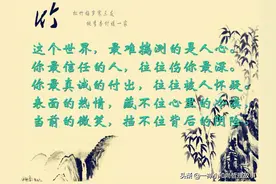 竹
这个世界，最难揣测的是人心。
你最信任的人，往往伤你最深。
你最真诚的付出，往往被人怀疑。
表面的热情，藏不住心里的
当前的微笑，挡不住背后的阴险
头条